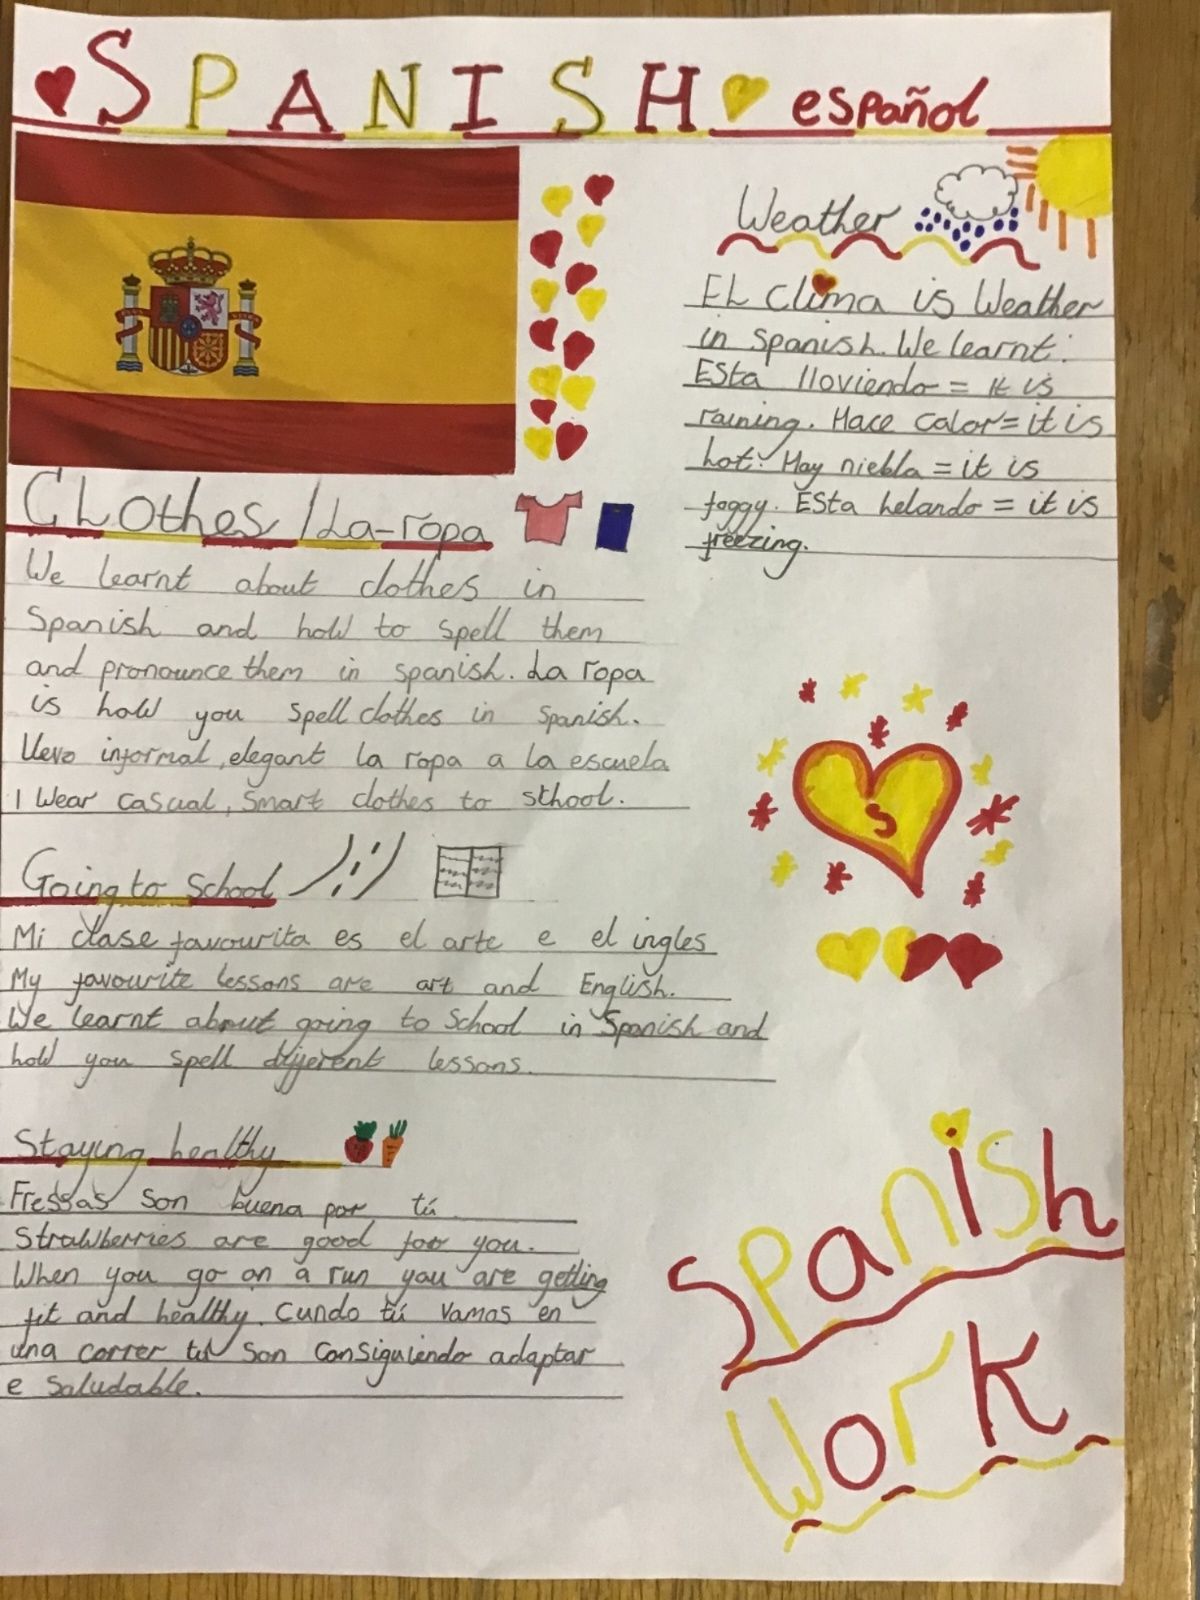 SPANISH español
Weather
El clima is Weather
in Spanish. We learnt:
Esta lloviendo = it is
raining. Hace calor = it is
hot. Hay niebla = it is
foggy. Esta helando = it is
freezing.
Clothes / La-ropa
We learnt about clothes in
Spanish and how to spell them
and pronounce them in spanish. La ropa
is how you spell clothes in Spanish.
llevo informal, elegant la ropa a la escuela
I wear casual, smart clothes to school.
Going to School
Mi clase favourita es el arte e el ingles
My favourite lessons are art and English.
We learnt about going to School in Spanish and
how you spell different lessons.
Staying healthy
Fressas son buena por tú
Strawberries are good for you.
When you go on a run you are getting
fit and healthy. Cundo tú vamos en
una correr tú son consiguiendo adaptar
e saludable.
S
Spanish
Work